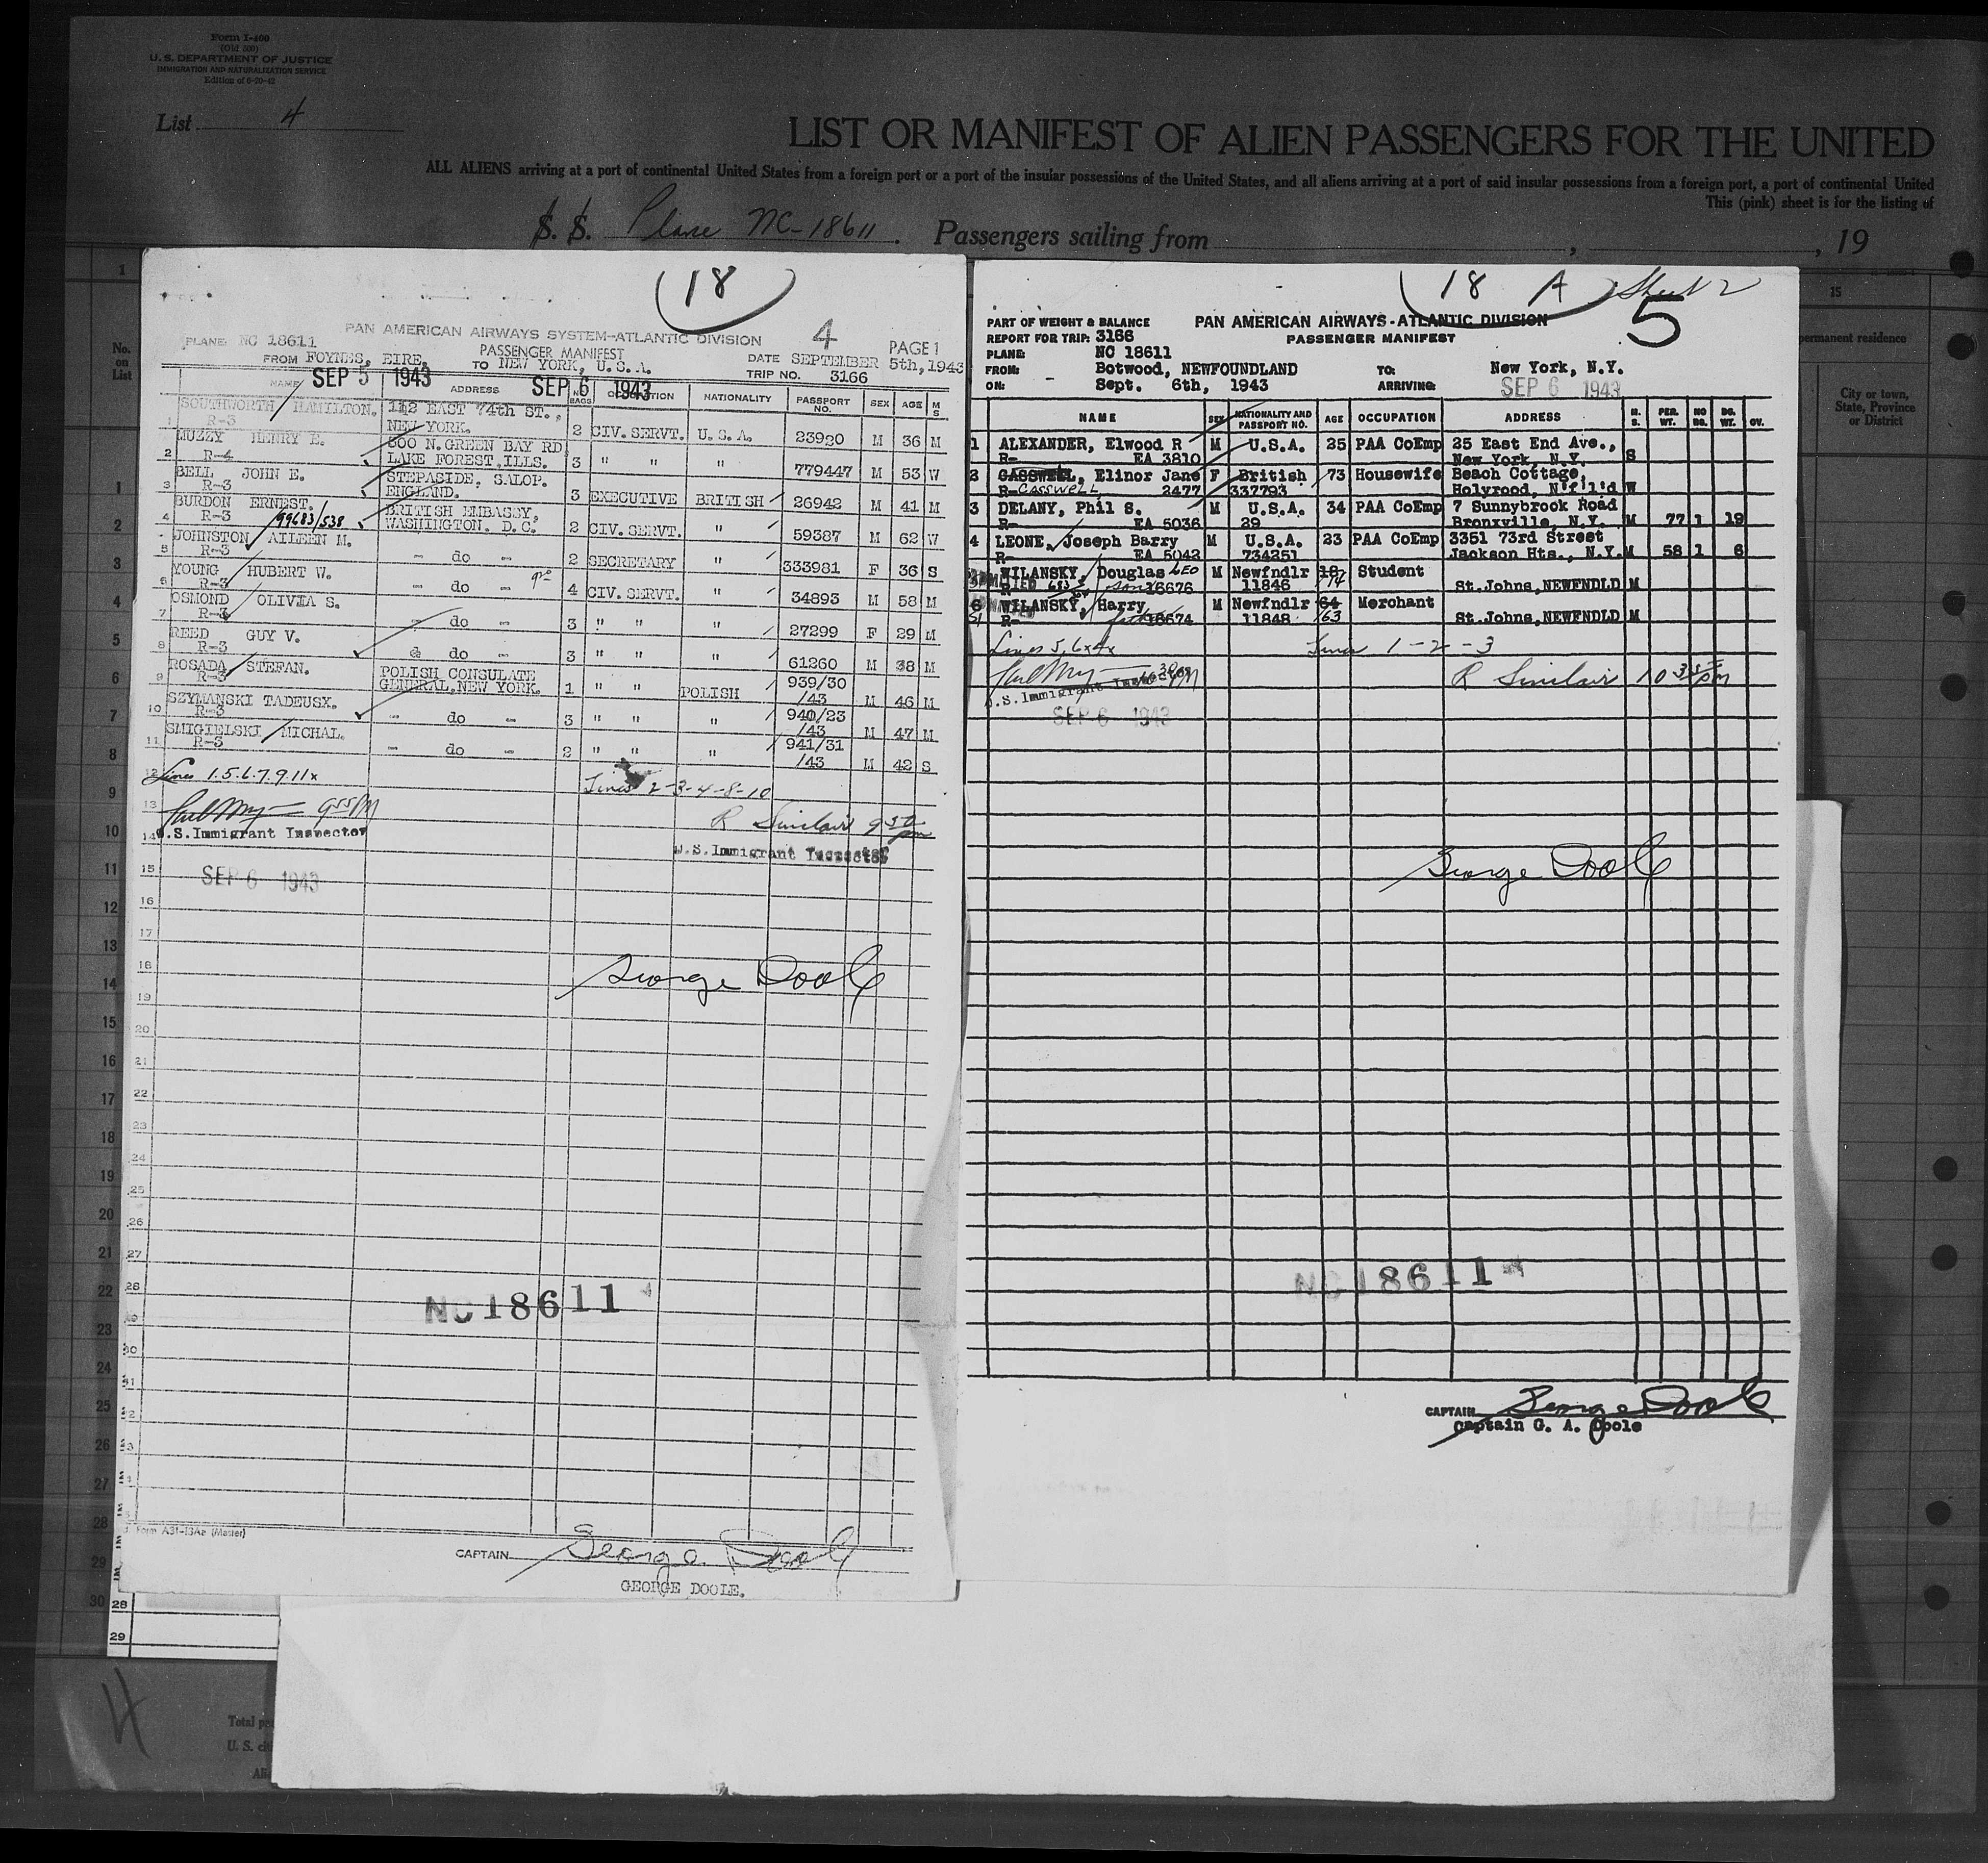 Form I-400
(Old 500)
U. S. DEPARTMENT OF JUSTICE
IMMIGRATION AND NATURALIZATION SERVICE
Edition of 6-20-42
List 4
LIST OR MANIFEST OF ALIEN PASSENGERS FOR THE UNITED
ALL ALIENS arriving at a port of continental United States from a foreign port or a port of the insular possessions of the United States, and all aliens arriving at a port of said insular possessions from a foreign port, a port of continental United
This (pink) sheet is for the listing of
S. S. Plane NC-18611. Passengers sailing from , , 19
(18)
PAN AMERICAN AIRWAYS SYSTEM-ATLANTIC DIVISION 4
PLANE NC 18611 PASSENGER MANIFEST PAGE 1
FROM FOYNES, EIRE. TO NEW YORK, U.S.A. DATE SEPTEMBER 5th, 1943
SEP 5 1943 SEP 6 1943 TRIP NO. 3166
NAME ADDRESS NO. BAGS OCCUPATION NATIONALITY PASSPORT NO. SEX AGE M S
1 SOUTHWORTH HAMILTON. 112 EAST 74th ST.,
R-3 NEW YORK. 2 CIV. SERVT. U.S.A. 23920 M 36 M
2 MUZZY HENRY E. 500 N.GREEN BAY RD
R-4 LAKE FOREST.ILLS. 3 " " " 779447 M 53 W
3 BELL JOHN E. STEPASIDE, SALOP.
R-3 ENGLAND. 3 EXECUTIVE BRITISH 26942 M 41 M
4 BURDON ERNEST. BRITISH EMBASSY,
R-3 99683/538 WASHINGTON. D.C. 2 CIV.SERVT. " 59387 M 62 W
5 JOHNSTON AILEEN M.
R-3 - do - 2 SECRETARY " 333981 F 36 S
6 YOUNG HUBERT W.
R-3 - do - 4 CIV. SERVT. " 34893 M 58 M
7 OSMOND OLIVIA S.
R-3 - do - 3 " " " 27299 F 29 M
8 REED GUY V.
R-3 - do - 3 " " " 61260 M 38 M
9 ROSADA STEFAN. POLISH CONSULATE 939/30
R-3 GENERAL,NEW YORK. 1 " " POLISH /43 M 46 M
10 SZYMANSKI TADEUSX. 940/23
R-3 - do - 3 " " " /43 M 47 M
11 SMIGIELSKI MICHAL. 941/31
R-3 - do - 2 " " " /43 M 42 S
12 Lines 1.5.6.7.9.11x Lines 2-3-4-8-10
13 9 55 PM R Sinclair 9 55 pm
14 U.S.Immigrant Inspector U.S.Immigrant Inspector
15 SEP 6 1943
16
17
18 George Doole
19
20
21
22
23
24
25
26
27
28 NC 18611
Form A31-13Aa (Master)
CAPTAIN George Doole
GEORGE DOOLE.
18 A Sheet 2
5
PART OF WEIGHT & BALANCE PAN AMERICAN AIRWAYS-ATLANTIC DIVISION
REPORT FOR TRIP: 3166 PASSENGER MANIFEST
PLANE: NC 18611
FROM: Botwood, NEWFOUNDLAND TO: New York, N.Y.
ON: - Sept. 6th, 1943 ARRIVING: SEP 6 1943
NAME SEX NATIONALITY AND PASSPORT NO. AGE OCCUPATION ADDRESS M. S. PER. WT. NO BG. BG. WT. OV.
1 ALEXANDER, Elwood R M U.S.A. 25 PAA CoEmp 25 East End Ave.,
R- EA 3810 New York, N.Y. S
2 GASSWELL, Elinor Jane F British 73 Housewife Beach Cottage,
R- CASSWELL 2477 337793 Holyrood, N'f'l'd W
3 DELANY, Phil S. M U.S.A. 34 PAA CoEmp 7 Sunnybrook Road
R- EA 5036 29 Bronxville, N.Y. M 77 1 19
4 LEONE, Joseph Barry M U.S.A. 23 PAA CoEmp 3351 73rd Street
R- EA 5042 734251 Jackson Hts., N.Y. M 58 1 6
WILANSKY, Douglas LEO M Newfndlr 18 Student
son 16676 11846 St.Johns,NEWFNDLD M
6 WILANSKY, Harry M Newfndlr 64 Merchant
R- father 16674 11848 63 St.Johns,NEWFNDLD M
Lines 5,6x4x Lines 1-2-3
R Sinclair 10 35 pm
U.S.Immigrant Inspector
SEP 6 1943
George Doole
NC 18611
CAPTAIN George Doole
Captain G. A. Doole
15
permanent residence
City or town,
State, Province
or District
1
No.
on
List
1
2
3
4
5
6
7
8
9
10
11
12
13
14
15
16
17
18
19
20
21
22
23
24
25
26
27
28
29
30
28
29
4